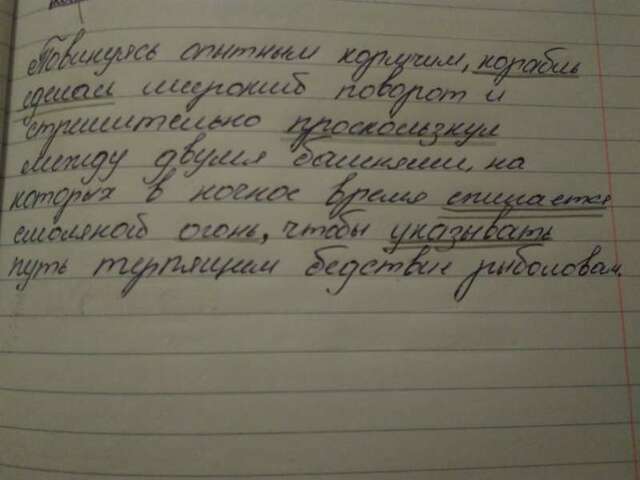 Повинуясь опытным кормчим, корабль
сделал широкий поворот и
стремительно проскользнул
между двумя башнями, на
которых в ночное время
смоляной огонь, чтобы указывать
путь терпящим бедствие рыболовам.